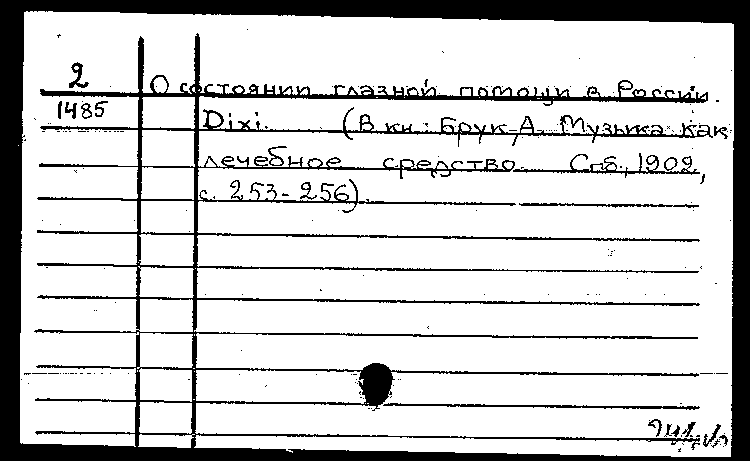 2
1485
О состоянии глазной помощи в России.
Dixi. (В кн: Брук А. Музыка как
лечебное средство. Спб., 1902,
с. 253-256).